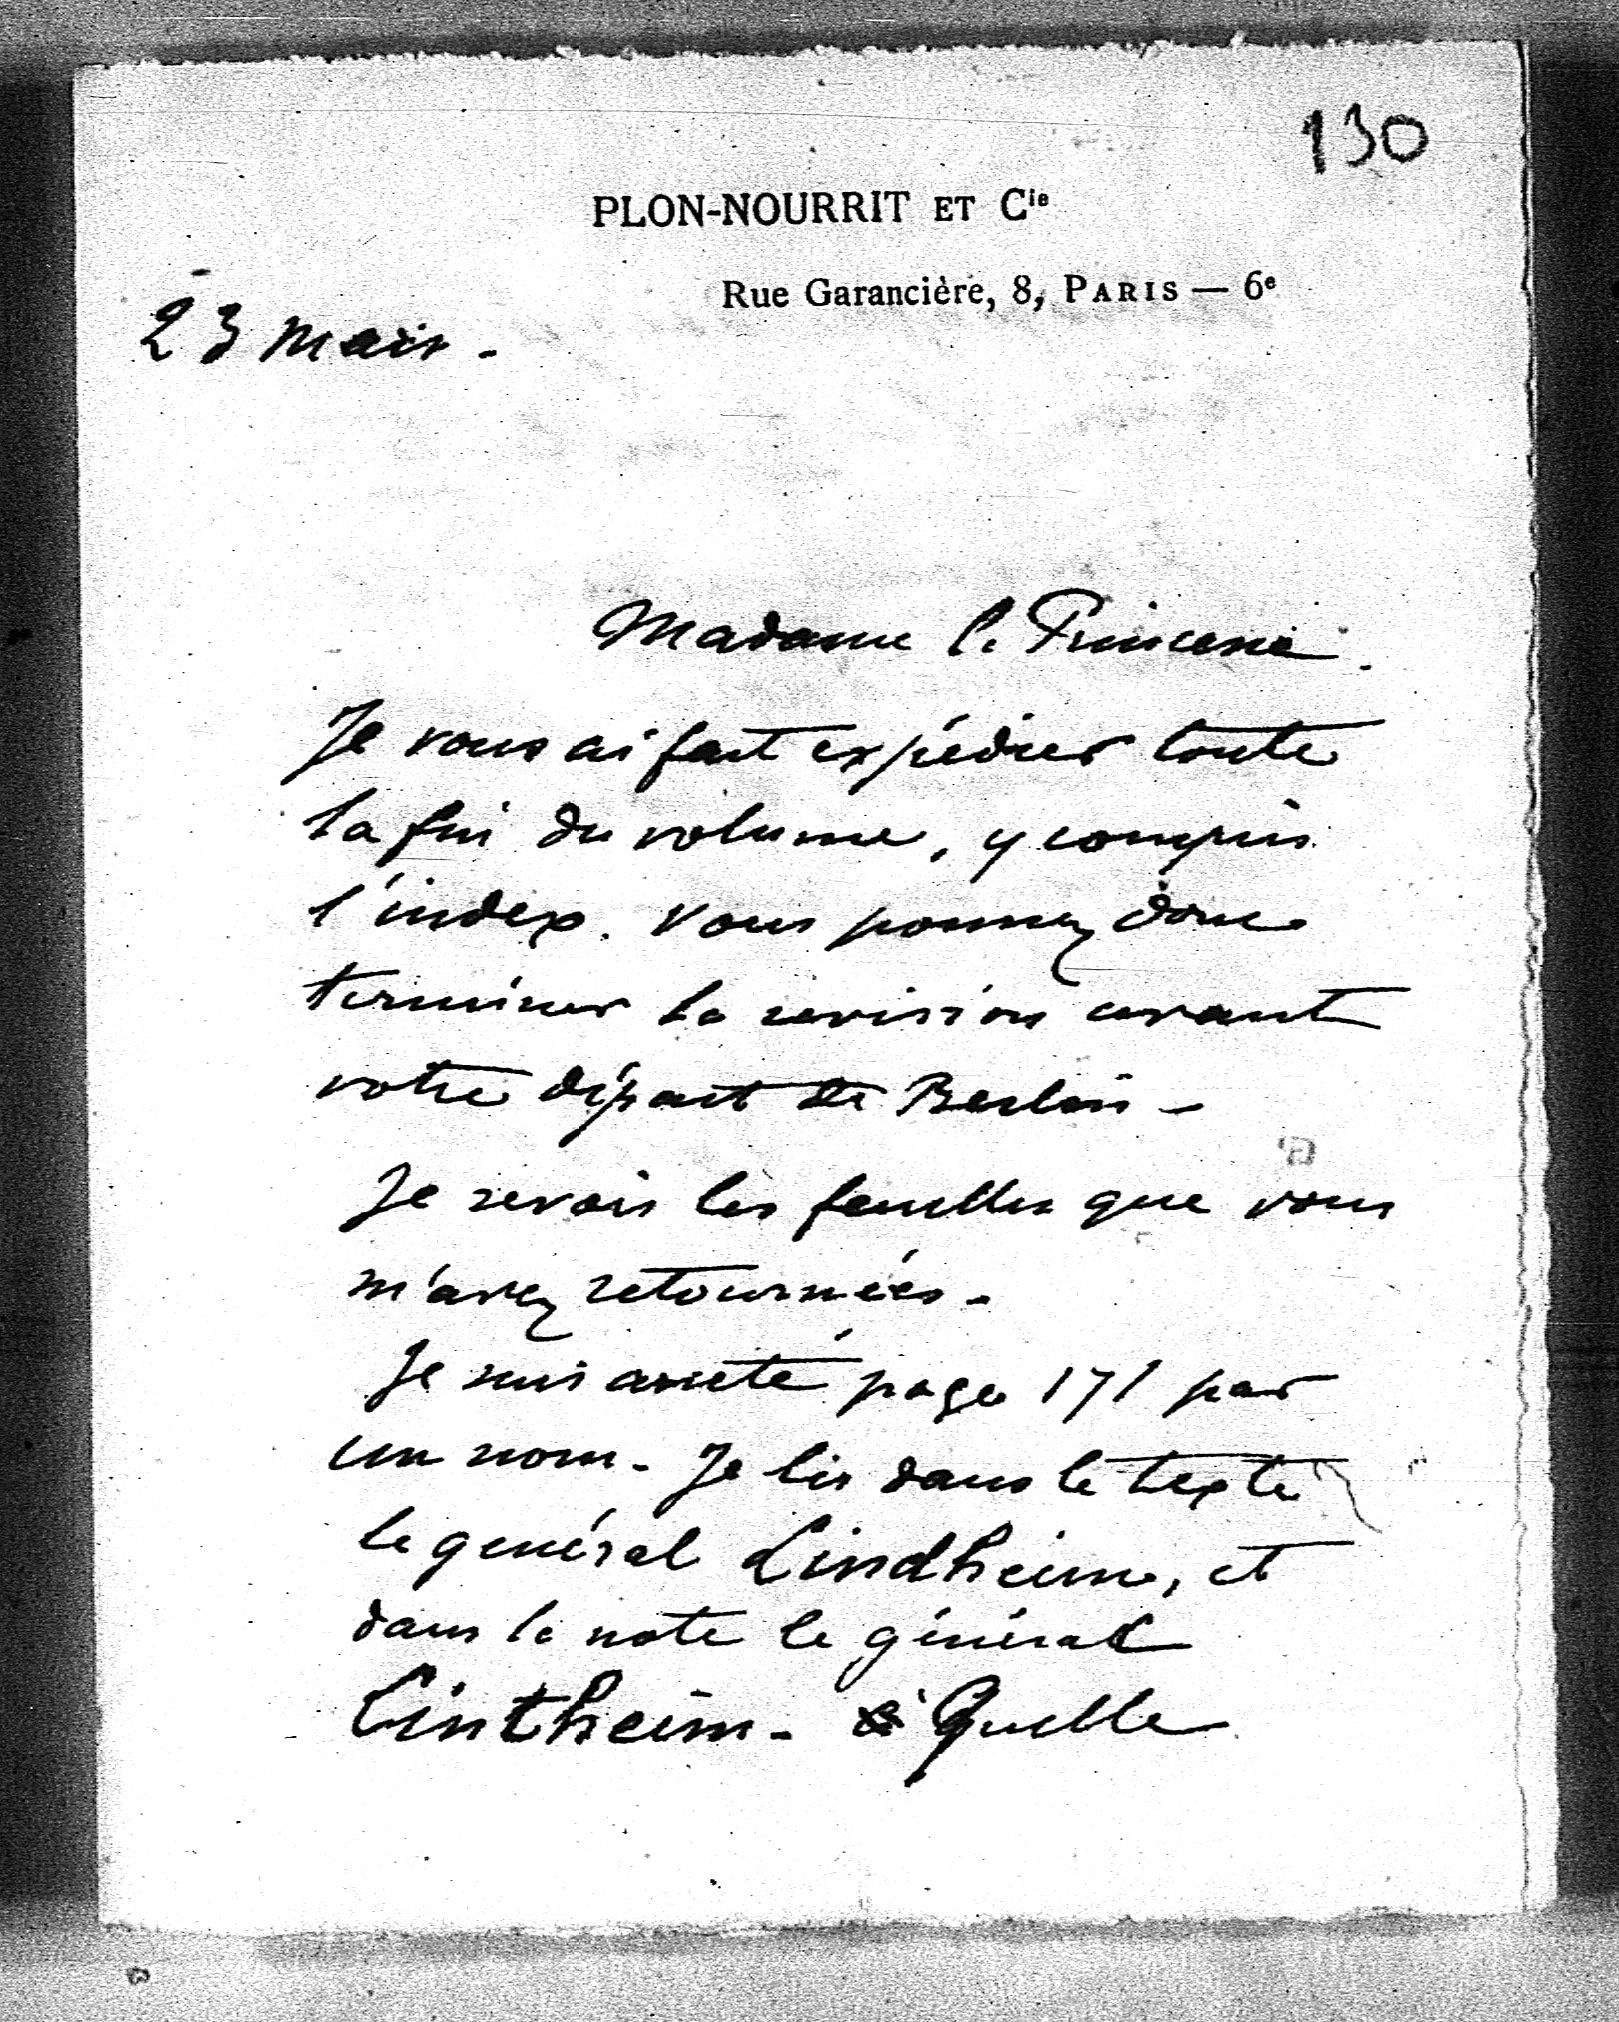 130
PLON-NOURRIT ET Cie
Rue Garancière, 8, PARIS — 6e
23 mars.
Madame la Princesse.
Je vous ai fait expédier toute
la fin du volume, y compris
l'index. Vous pourrez donc
terminer la revision avant
votre départ de Berlin –
Je revois les feuilles que vous
m'avez retournées.
Je suis arrêté page 171 par
un nom. Je lis dans le texte
le général Lindheim, et
dans la note le général
Lintheim. Quelle